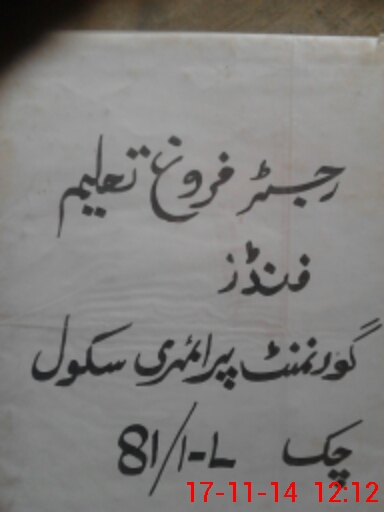 رجسٹر فروغ تعلیم
فنڈز
گورنمنٹ پرائمری سکول
چک 81/1-L
17-11-14 12:12